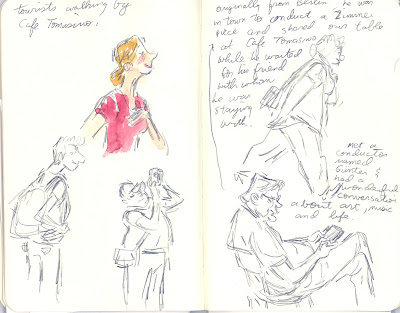 tourists walking by
Cafe Tomasino.
originally from Berlin he was
in town to conduct a Zimmer
piece and shared our table
at Cafe Tomasino
while he waited
for his friend
with whom
he was
staying
with.
Met a
conductor
named
Gunter &
had a
wonderful
conversation
about art, music
and life.